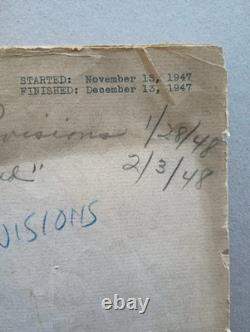 STARTED: November 13, 1947
FINISHED: December 13, 1947
visions 1/28/48
ed" 2/3/48
VISIONS
ebay